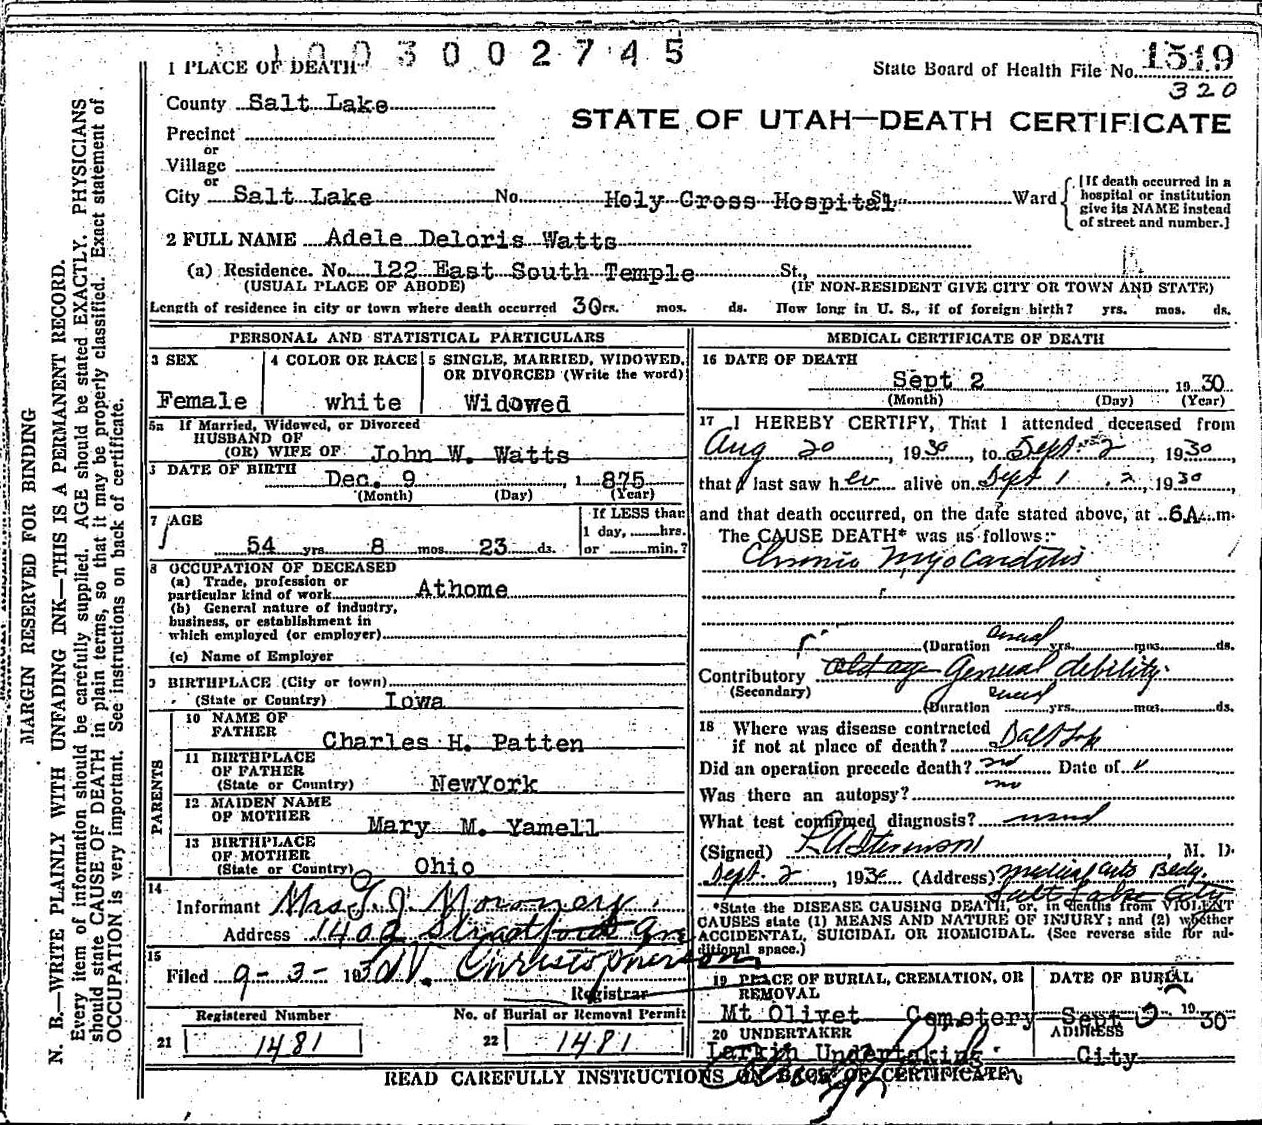 1003002745
1 PLACE OF DEATH
State Board of Health File No. 1519
320
County Salt Lake
STATE OF UTAH—DEATH CERTIFICATE
Precinct
or
Village
or
City Salt Lake No. Holy Cross Hospital St. Ward
[If death occurred in a hospital or institution give its NAME instead of street and number.]
2 FULL NAME Adele Deloris Watts
(a) Residence. No. 122 East South Temple St.,
(USUAL PLACE OF ABODE) (IF NON-RESIDENT GIVE CITY OR TOWN AND STATE)
Length of residence in city or town where death occurred 30rs. mos. ds. How long in U. S., if of foreign birth? yrs. mos. ds.
PERSONAL AND STATISTICAL PARTICULARS
3 SEX 4 COLOR OR RACE 5 SINGLE, MARRIED, WIDOWED,
OR DIVORCED (Write the word)
Female white Widowed
5a If Married, Widowed, or Divorced
HUSBAND OF
(OR) WIFE OF John W. Watts
DATE OF BIRTH Dec. 9 , 1 875
(Month) (Day) (Year)
7 AGE If LESS than
1 day, hrs.
54 yrs 8 mos. 23 ds. or min.?
8 OCCUPATION OF DECEASED
(a) Trade, profession or
particular kind of work Athome
(b) General nature of industry,
business, or establishment in
which employed (or employer)
(c) Name of Employer
9 BIRTHPLACE (City or town)
(State or Country) Iowa
PARENTS
10 NAME OF
FATHER Charles H. Patten
11 BIRTHPLACE
OF FATHER
(State or Country) NewYork
12 MAIDEN NAME
OF MOTHER Mary M. Yamell
13 BIRTHPLACE
OF MOTHER
(State or Country) Ohio
14
Informant Mrs J. J.
Address 1402 Stratford Av
15
Filed 9-3-1930 Christopherson
Registrar
Registered Number No. of Burial or Removal Permit
21 1481 22 1481
MEDICAL CERTIFICATE OF DEATH
16 DATE OF DEATH
Sept 2 , 19 30
(Month) (Day) (Year)
17 I HEREBY CERTIFY, That I attended deceased from
Aug 20 , 1930, to Sept. 2 , 1930
that I last saw her alive on Sept 1 . 2, 1930,
and that death occurred, on the date stated above, at 6A m.
The CAUSE DEATH* was as follows:-
Chronic Myocarditis
(Duration several yrs. mos. ds.
Contributory old age General debility
(Secondary)
(Duration yrs. mos. ds.
18 Where was disease contracted
if not at place of death? Salt Lake
Did an operation precede death? no Date of
Was there an autopsy? no
What test confirmed diagnosis? usual
(Signed) Stevenson M. D.
Sept. 2 , 1930 (Address) Medical Arts Bldg.
Salt Lake City
*State the DISEASE CAUSING DEATH, or, in from VIOLENT
CAUSES state (1) MEANS AND NATURE OF INJURY; and (2) whether
ACCIDENTAL, SUICIDAL OR HOMICIDAL. (See reverse side for ad-
ditional space.)
19 PLACE OF BURIAL, CREMATION, OR
REMOVAL
DATE OF BURIAL
Mt Olivet Cemetery Sept 3 19 30
20 UNDERTAKER ADDRESS
Larkin Undertaking City
READ CAREFULLY INSTRUCTIONS ON BACK OF CERTIFICATE
MARGIN RESERVED FOR BINDING
N. B.—WRITE PLAINLY WITH UNFADING INK—THIS IS A PERMANENT RECORD.
Every item of information should be carefully supplied. AGE should be stated EXACTLY. PHYSICIANS
should state CAUSE OF DEATH in plain terms, so that it may be properly classified. Exact statement of
OCCUPATION is very important. See instructions on back of certificate.